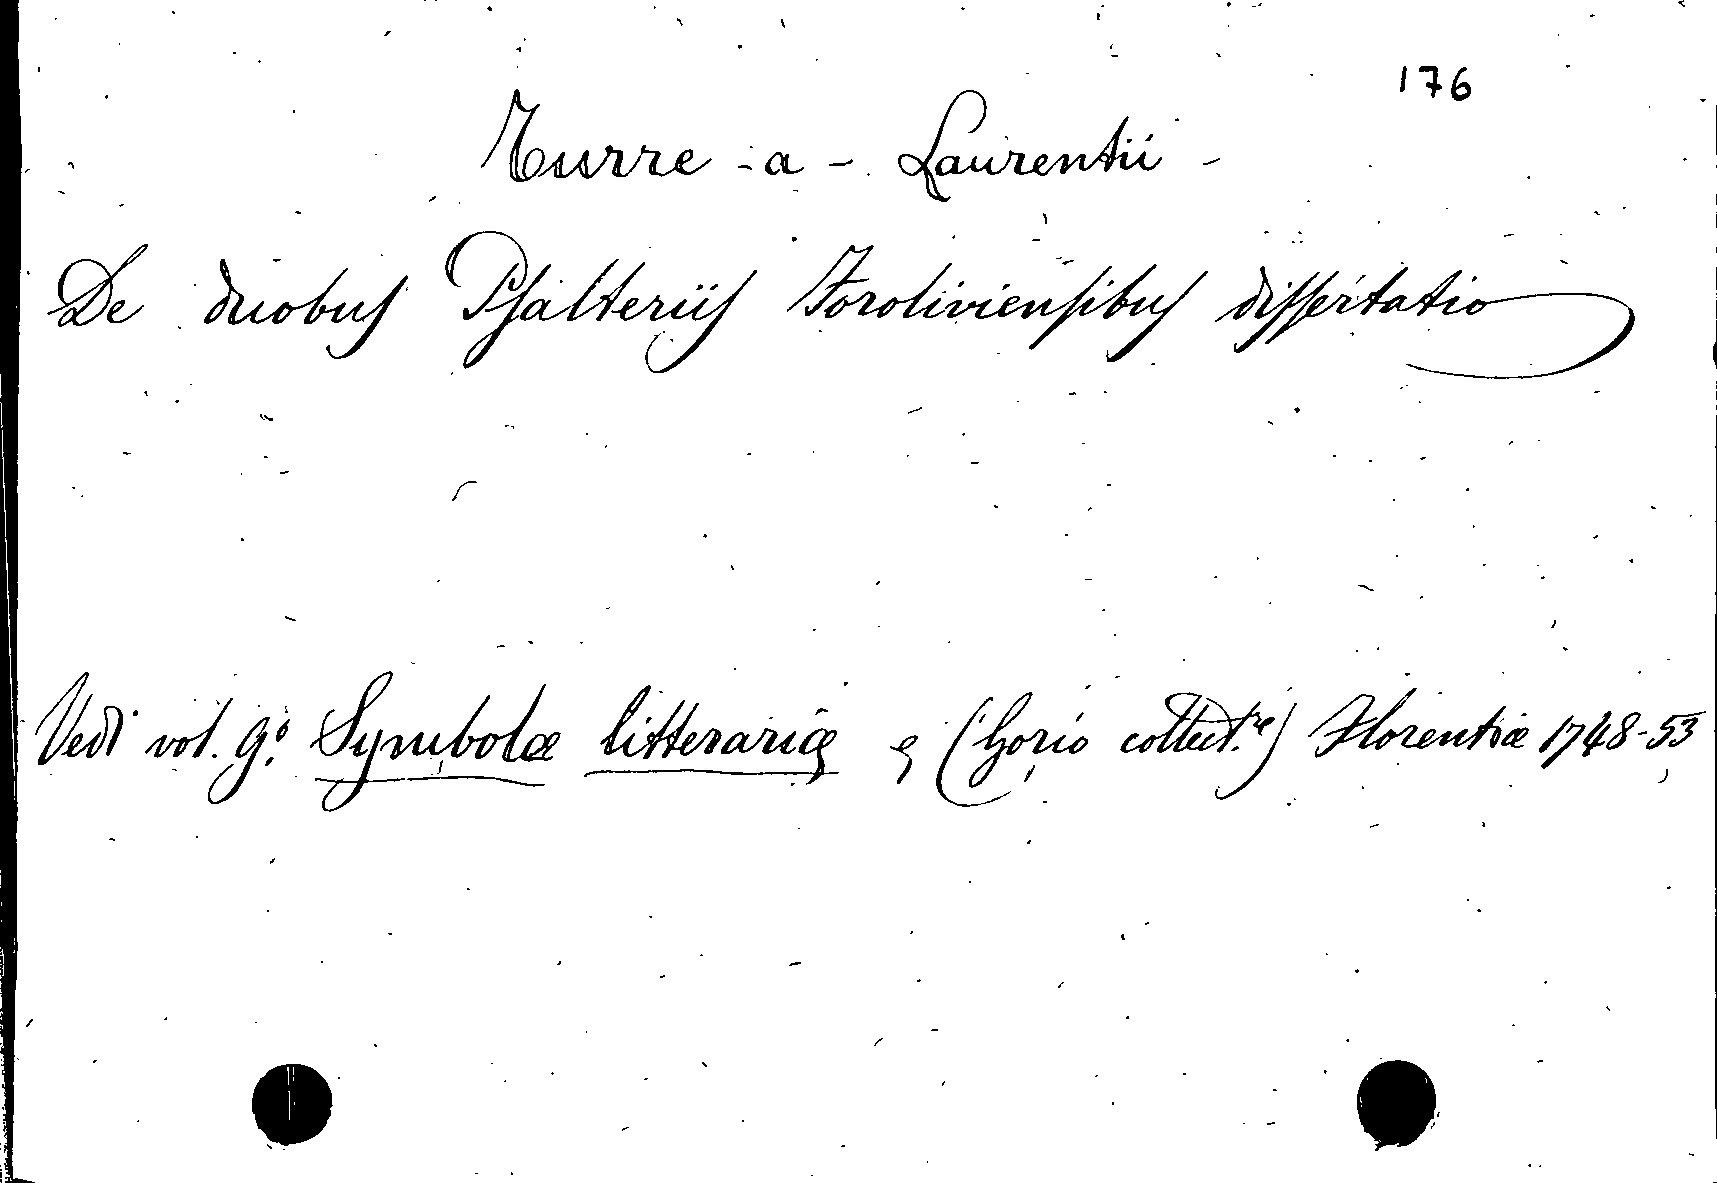 176
Turre - a - Laurentii -
De duobus Psalteriis Foroliviensibus dissertatio
Vedi vol. 9.º Symbolæ litterariæ (Gorio collect.re) Florentiæ 1748-53